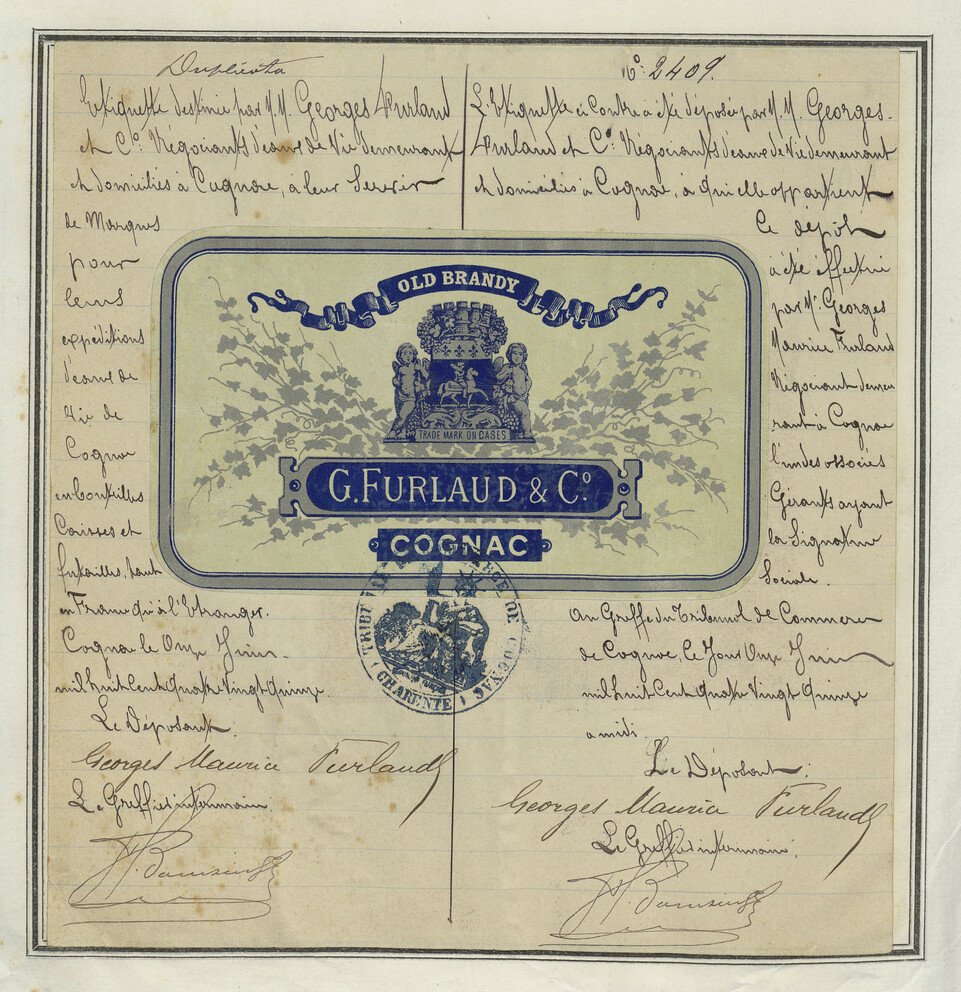 Duplicata
Etiquette destinée par M.M. Georges Furlaud
et Cº. Négociants d'eaux de Vie demeurant
et domiciliés à Cognac, à leur Servir
de Marques
pour
leurs
expéditions
d'eaux de
Vie de
Cognac
en bouteilles
Caisses et
futailles, tant
en France qu'à l'Etranger.
Cognac le Onze Juin
mil huit Cent quatre Vingt Quinze
Le Déposant
Georges Maurice Furlaud
Le Greffier intérimaire
Nº. 2409.
L'Etiquette ci Contre a été déposée par M.M. Georges
Furlaud et Cº. Négociants d'eaux de Vie demeurant
et domiciliés à Cognac, à qui elle appartient
Ce dépôt
a été effectué
par Mr. Georges
Maurice Furlaud
Négociant demeu
rant à Cognac
l'un des associés
Gérants ayant
la Signature
Sociale.
Au Greffe du Tribunal de Commerce
de Cognac, Ce Jour Onze Juin
mil huit Cent quatre Vingt Quinze
a midi.
Le Déposant.
Georges Maurice Furlaud
Le Greffier intérimaire.
OLD BRANDY
TRADE MARK ON CASES
G. FURLAUD & Cº
COGNAC
TRIBUNAL DE COMMERCE DE COGNAC
(CHARENTE)